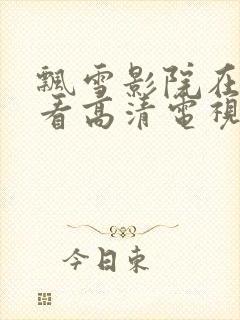 飄雪影院在
看高清電視
今日東